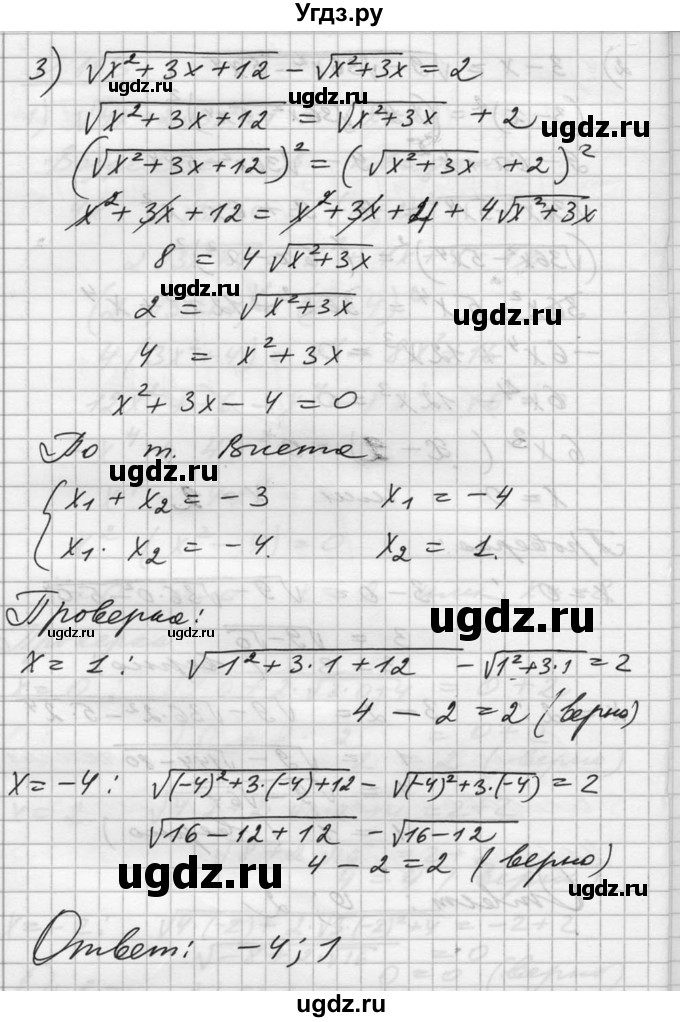 Угдз.ру
3) √(x² + 3x + 12) - √(x² + 3x) = 2
√(x² + 3x + 12) = √(x² + 3x) + 2
ugdz.ru
(√(x² + 3x + 12))² = (√(x² + 3x) + 2)²
x² + 3x + 12 = x² + 3x + 4 + 4√(x² + 3x)
8 = 4√(x² + 3x)
ugdz.ru
2 = √(x² + 3x)
ugdz.ru
4 = x² + 3x
x² + 3x - 4 = 0
По т. Виета
ugdz.ru
x₁ + x₂ = -3 x₁ = -4
x₁ · x₂ = -4. x₂ = 1.
Проверка:
ugdz.ru
ugdz.ru ugdz.ru
x = 1: √(1² + 3·1 + 12) - √(1² + 3·1) = 2
4 - 2 = 2 (верно)
x = -4: √((-4)² + 3·(-4) + 12) - √((-4)² + 3·(-4)) = 2
√(16 - 12 + 12) - √(16 - 12)
4 - 2 = 2 (верно)
ugdz.ru
ugdz.ru
Ответ: -4; 1
ugdz.ru